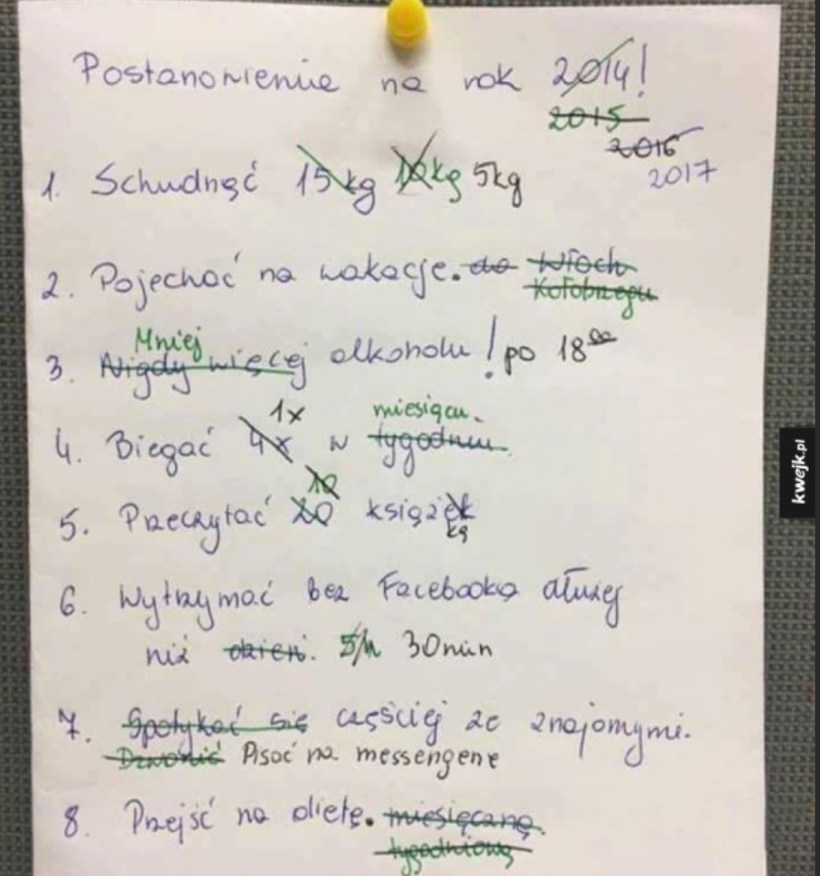 Postanowienie na rok 2014!
2015
2016
2017
1. Schudnąć 15 kg 10kg 5kg
2. Pojechać na wakacje. do Włoch
Kołobrzegu
Mniej
3. Nigdy więcej alkoholu! po 18⁰⁰
1x miesiącu.
4. Biegać 4x w tygodniu.
10
5. Przeczytać 20 książek
kę
6. Wytrzymać bez Facebooka dłużej
niż dzień. 5h 30min
7. Spotykać się częściej ze znajomymi.
Dzwonić Pisać na messengerze
8. Przejść na dietę. miesięczną.
tygodniową
kwejk.pl